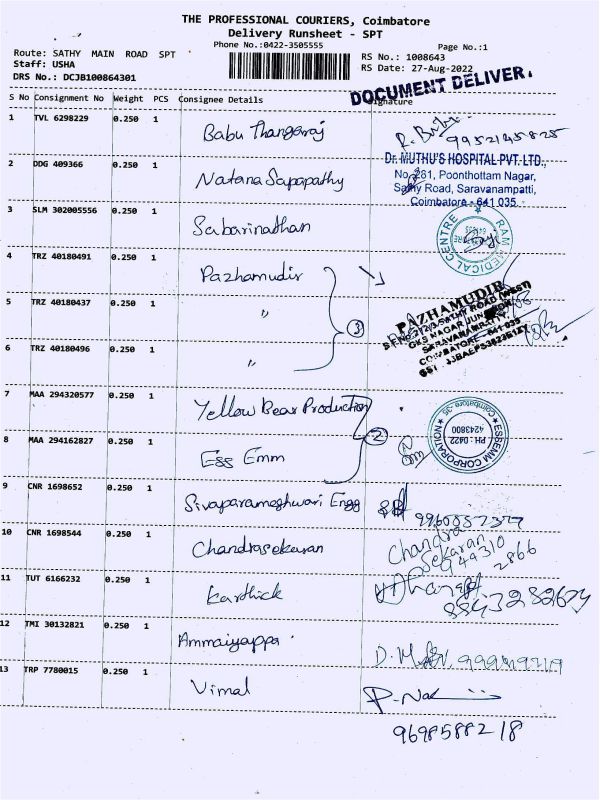 THE PROFESSIONAL COURIERS, Coimbatore
Delivery Runsheet - SPT
Phone No.:0422-3505555
Page No.:1
Route: SATHY MAIN ROAD SPT
RS No.: 1008643
Staff: USHA
RS Date: 27-Aug-2022
DRS No.: DCJB100864301
DOCUMENT DELIVER.
S No Consignment No Weight PCS Consignee Details Signature
1 TVL 6298229 0.250 1 Babu Thangaraj
9952145825
Dr. MUTHU'S HOSPITAL PVT. LTD.,
No. 281, Poonthottam Nagar,
Sathy Road, Saravanampatti,
Coimbatore - 641 035.
2 DDG 409366 0.250 1 Natana Sapapathy
3 SLM 302005556 0.250 1 Sabarinathan
RAM MEDICAL CENTRE
4 TRZ 40180491 0.250 1 Pazhamudir
5 TRZ 40180437 0.250 1 "
3
PAZHAMUDIR
SARAVANAMPATTY,
COIMBATORE - 641 035
6 TRZ 40180496 0.250 1 "
7 MAA 294320577 0.250 1 Yellow Bear Production
2
ESBENM CORPORATION
Coimbatore-35.
PH : 0422
4243800
8 MAA 294162827 0.250 1 Ess Emm
9 CNR 1698652 0.250 1 Sivaparameshwari Engg
10 CNR 1698544 0.250 1 Chandrasekaran
Chandra
Sekaran
944310
2866
11 TUT 6166232 0.250 1 Karthick
12 TMI 30132821 0.250 1 Ammaiyappa
13 TRP 7780015 0.250 1 Vimal
9698588218